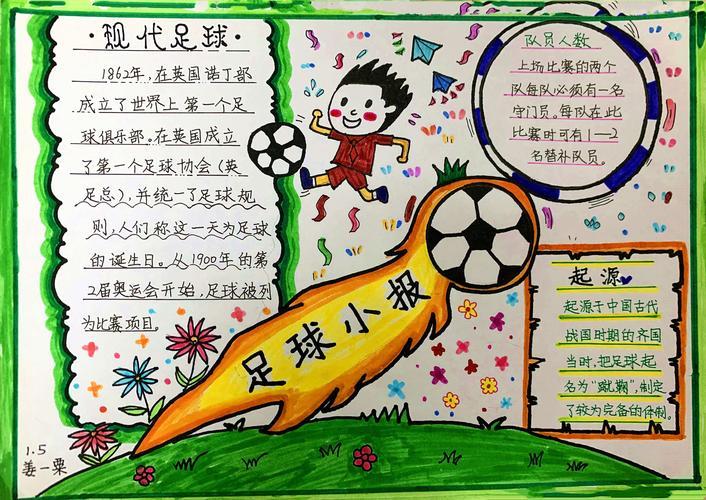 ·现代足球·
1862年,在英国诺丁郡
成立了世界上第一个足
球俱乐部。在英国成立
了第一个足球协会(英
足总),并统一了足球规
则,人们称这一天为足球
的诞生日。从1900年的第
2届奥运会开始,足球被列
为比赛项目。
队员人数
上场比赛的两个
队每队必须有一名
守门员。每队在此
比赛时可有1—2
名替补队员。
足球小报
起源
起源于中国古代
战国时期的齐国
当时,把足球起
名为“蹴鞠”,制定
了较为完备的体制。
1.5
姜一粟